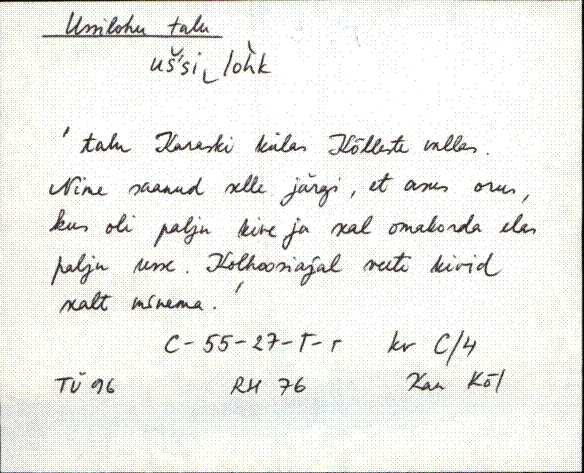 Ussilohu talu
ušsi lohk
' talu Karaski külas Kõlleste vallas.
Nime saanud selle järgi, et asus orus,
kus oli palju kive ja seal omakorda elas
palju usse. Kolhoosiajal veeti kivid
sealt minema. '
C-55-27-T-r kv C/4
TÜ 96 RH 76 Kan Kõl